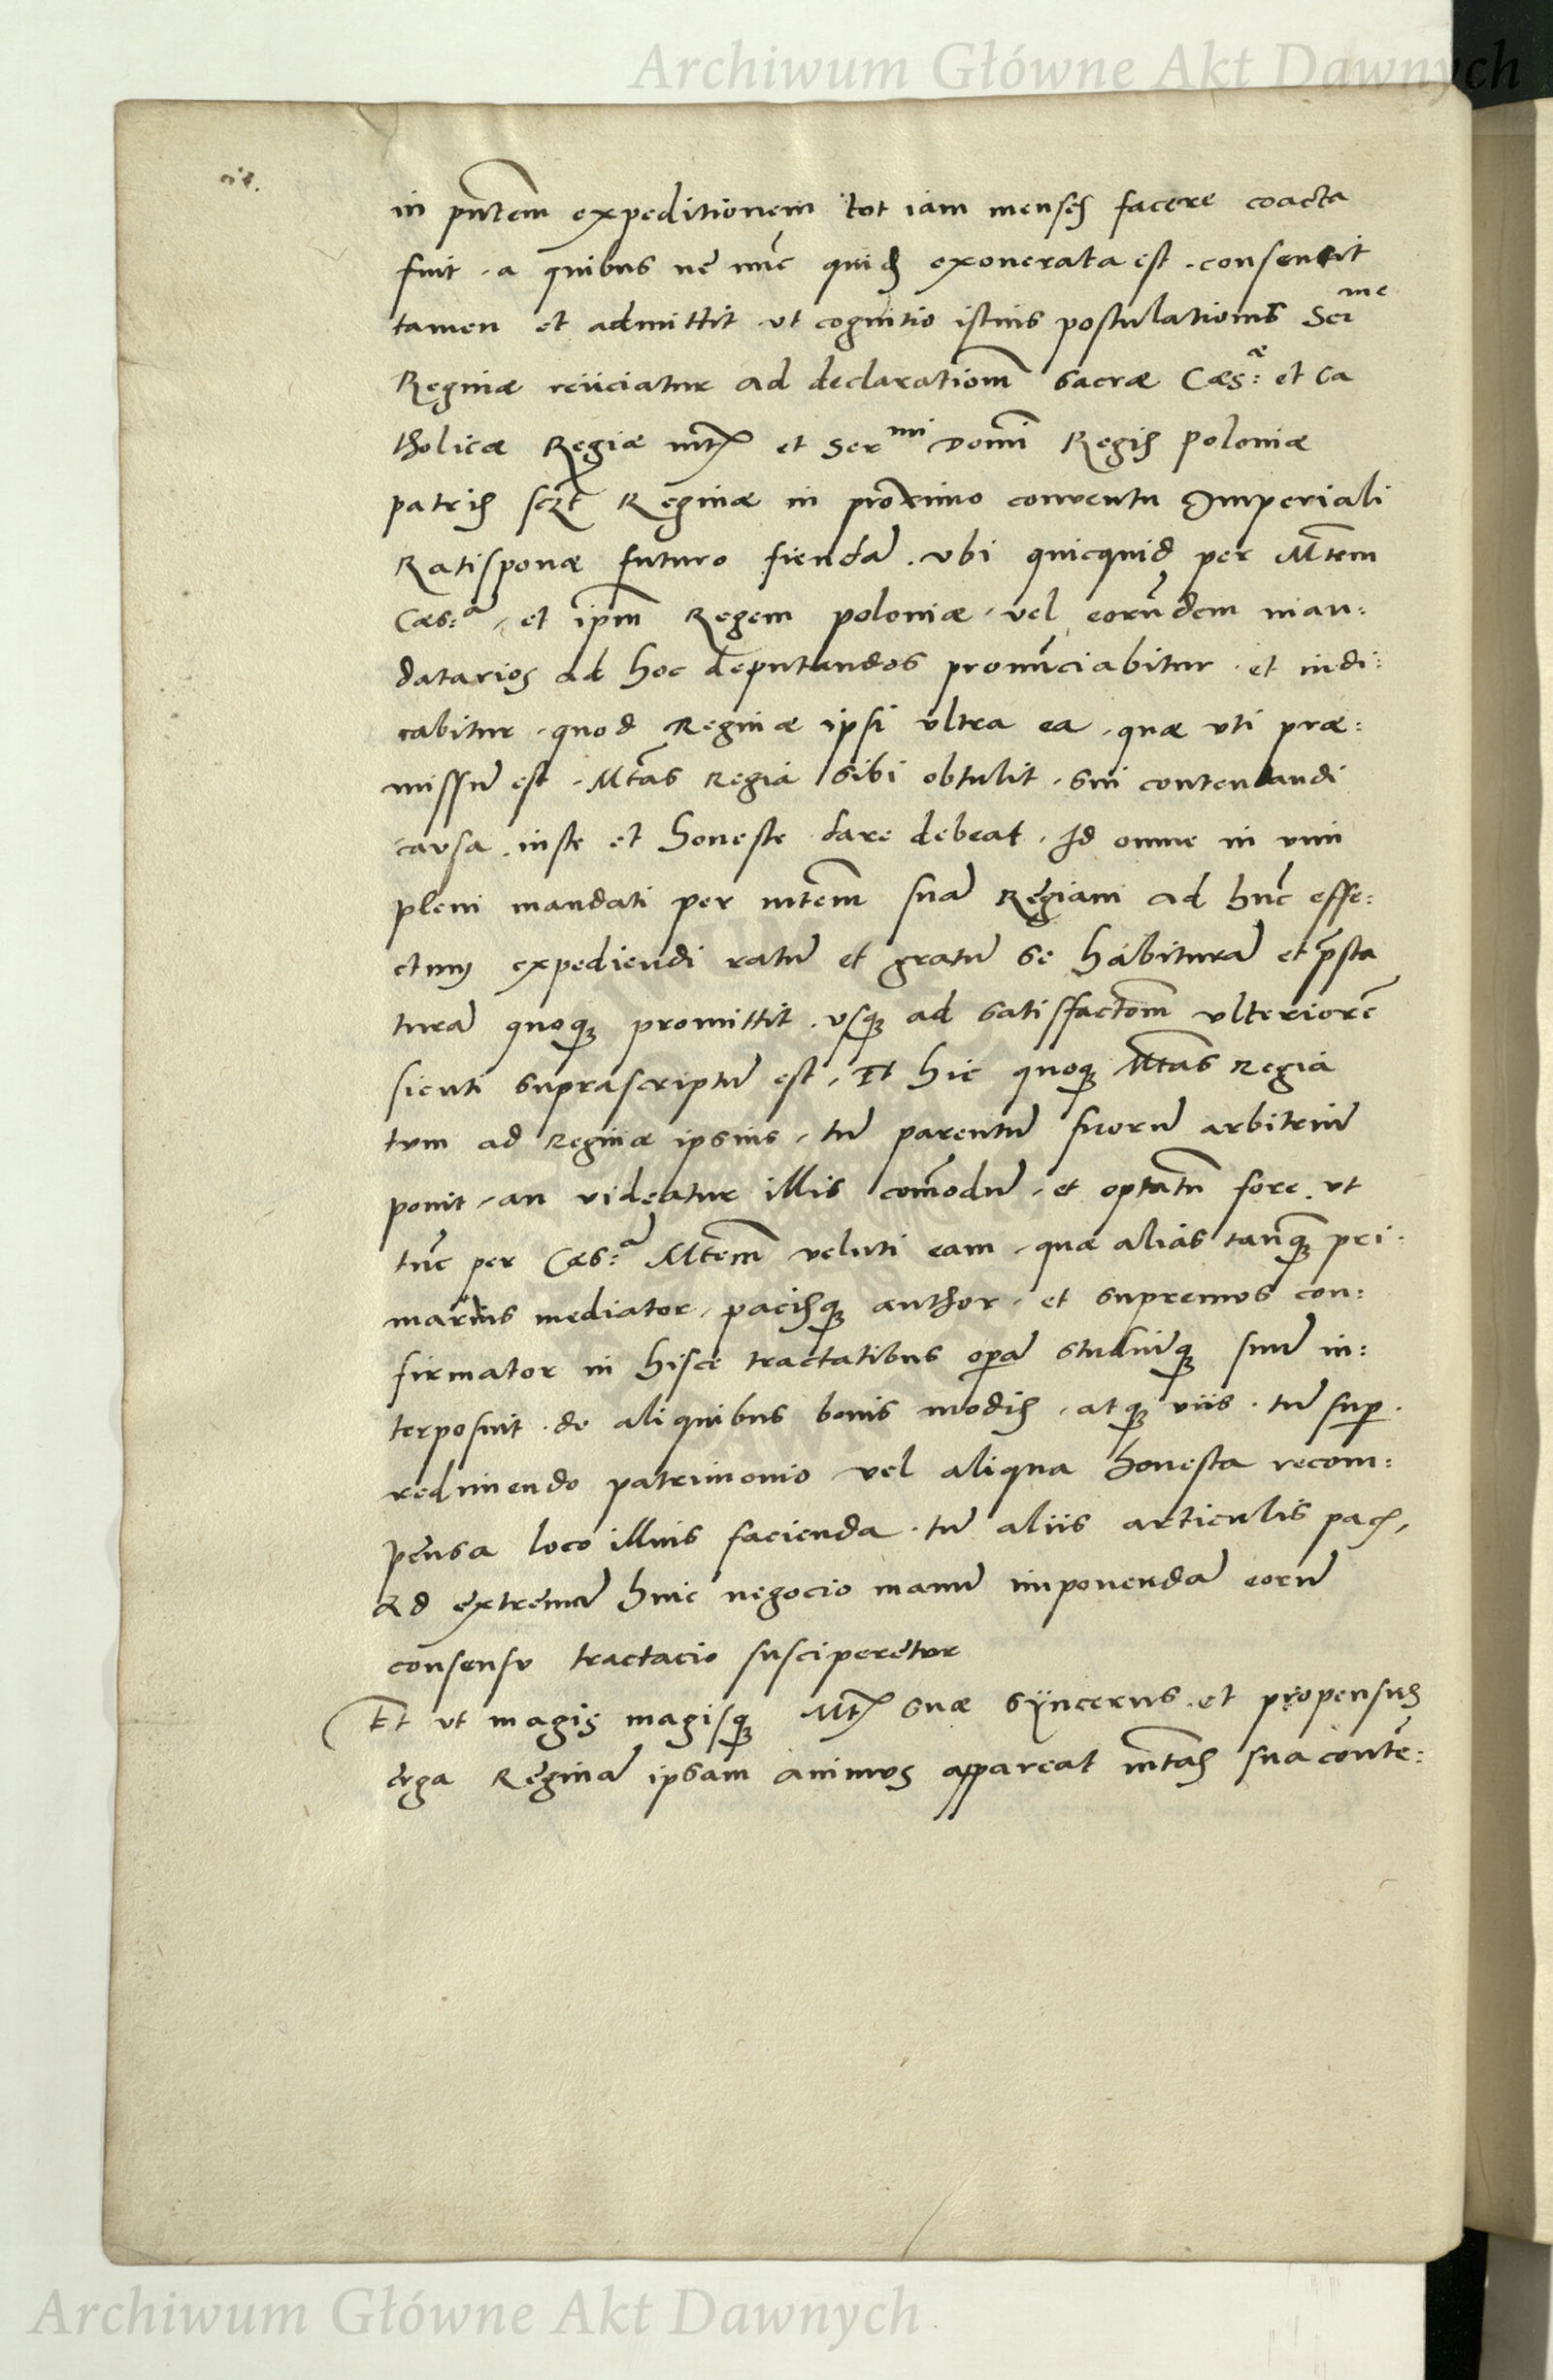 Archiwum Główne Akt Dawnych
in pn̄tem expeditionem tot iam menses facere coacta
fuit. a quibus nē nūc quid̄ exonerata est. consentit
tamen et admittit ut cognitio istius postulationis Ser^me
Reginæ reijciatur ad declarationem̄ sacræ Cæs:^æ et Ca
tholicæ Regiæ mt̄is et Ser^mi Domī Regis Poloniæ
patris ser̄ Reginæ in proximo conventu Imperiali
Ratisponæ futuro fiendā. ubi quicquid per Mt̄em
Cæs:^a, et ipm̄ Regem poloniæ, vel eorūdem man:
datarios ad hoc deputandos pronūciabitur. et iudi:
cabitur. quod Reginæ ipsi ultra ea, quæ uti præ:
missū est. Mt̄as Regia sibi obtulit. sui contentandi
causa. iuste et honeste dare debeat. Id omne in vim
pleni mandati per mt̄em suā Regiam ad hūc effe:
ctum expediendi ratū et gratū se habiturā et p̄sta
turā quoq; promittit. usq; ad satisfactōm ulteriorē
sicuti suprascriptū est. Et hic quoq; Mt̄as Regia
tum ad Reginæ ipsius, tū parentū suorū arbitriū
ponit, an videatur illis com̄odū, et optatū fore, ut
tūc per Cæs:^a Mt̄em veluti eam, quæ alias tanq̄; pri:
marius mediator, pacisq; author, et supremus con:
firmator in hisce tractatibus operā studiūq; suū in:
terposuit. de aliquibus bonis modis, atq; viis. tū sup̄.
redimendo patrimonio vel aliqua honesta recom:
pensa loco illius facienda. tū aliis articulis pacis,
Ad extremā huic negocio manū imponendā eorū
consensu tractacio susciperetur
Et ut magis magisq; Mt̄is suæ syncerus. et propensus
erga Reginā ipsam animus appareat mt̄as sua contē:
Archiwum Główne Akt Dawnych